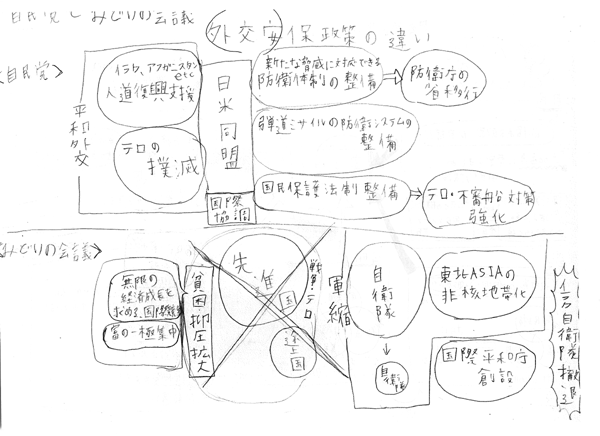 自民党とみどりの会議
外交安保政策の違い
<自民党>
平和外交
イラク、アフガニスタン
etc
人道復興支援
テロの
撲滅
日米同盟
国際
協調
新たな脅威に対応できる
防衛体制の整備
防衛庁の
省移行
弾道ミサイルの防衛システムの
整備
国民保護法制整備
テロ・不審船対策
強化
<みどりの会議>
無限の
経済成長を
求める、国際競争
富の一極集中
貧困抑圧拡大
先進
国
途上
国
戦争・テロ
軍縮
自衛隊
自衛隊
東北ASIAの
非核地帯化
国際平和庁
創設
自衛隊撤退